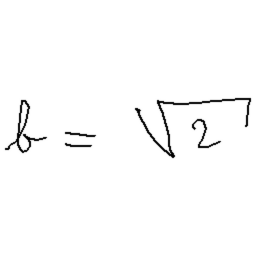 b = √2